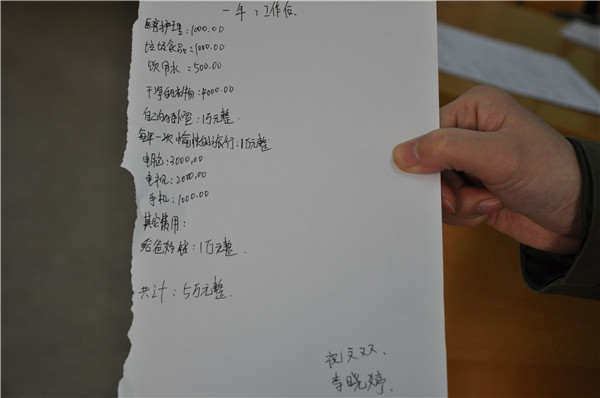 一年:工作后.
医育护理:1000.00
垃圾食品:1000.00
饮用水:500.00
干净的衣物:4000.00
自己的卧室:1万元整
每年一次愉快的旅行:1万元整
电脑:3000.00
电视:2000.00
手机:1000.00
其它费用:
给爸妈钱:1万元整.
共计:5万元整.
祝文双、
李晓婷.